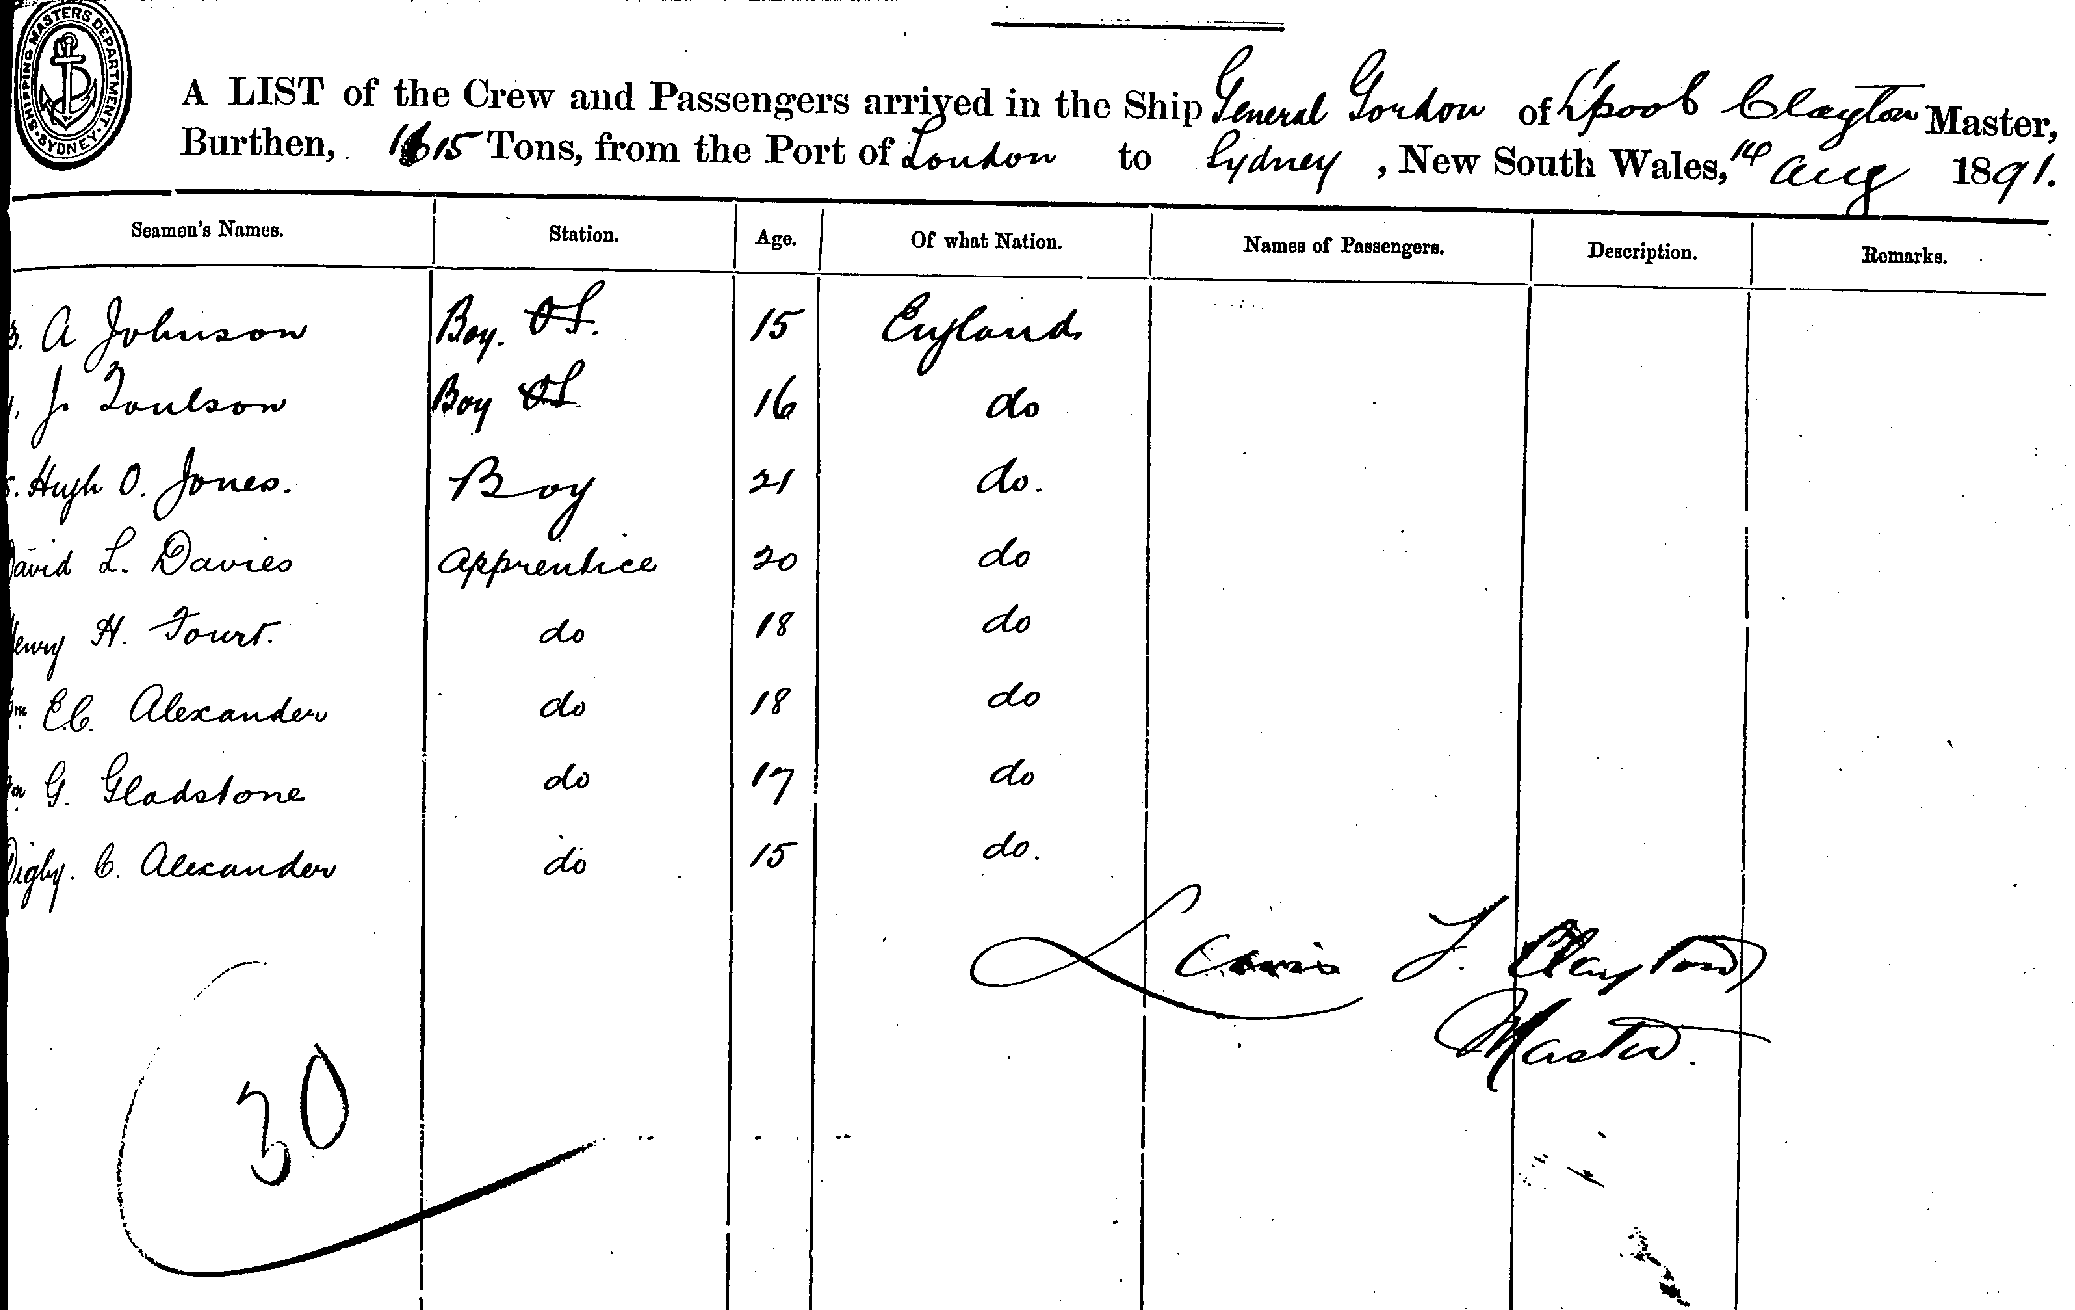 SHIPPING MASTERS DEPARTMENT. SYDNEY.
A LIST of the Crew and Passengers arrived in the Ship General Gordon of L'pool Clayton Master,
Burthen, 1615 Tons, from the Port of London to Sydney, New South Wales, 14 Aug 1891.
Seamen's Names. Station. Age. Of what Nation. Names of Passengers. Description. Remarks.
A Johnson Boy. OS. 15 England
J. Toulson Boy OS 16 do
Hugh O. Jones. Boy 21 do.
David L. Davies Apprentice 20 do
Henry H. do 18 do
Wm E.C. Alexander do 18 do
Wm G. Gladstone do 17 do
Digby. C. Alexander do 15 do.
Louis F. Clayton
Master.
30